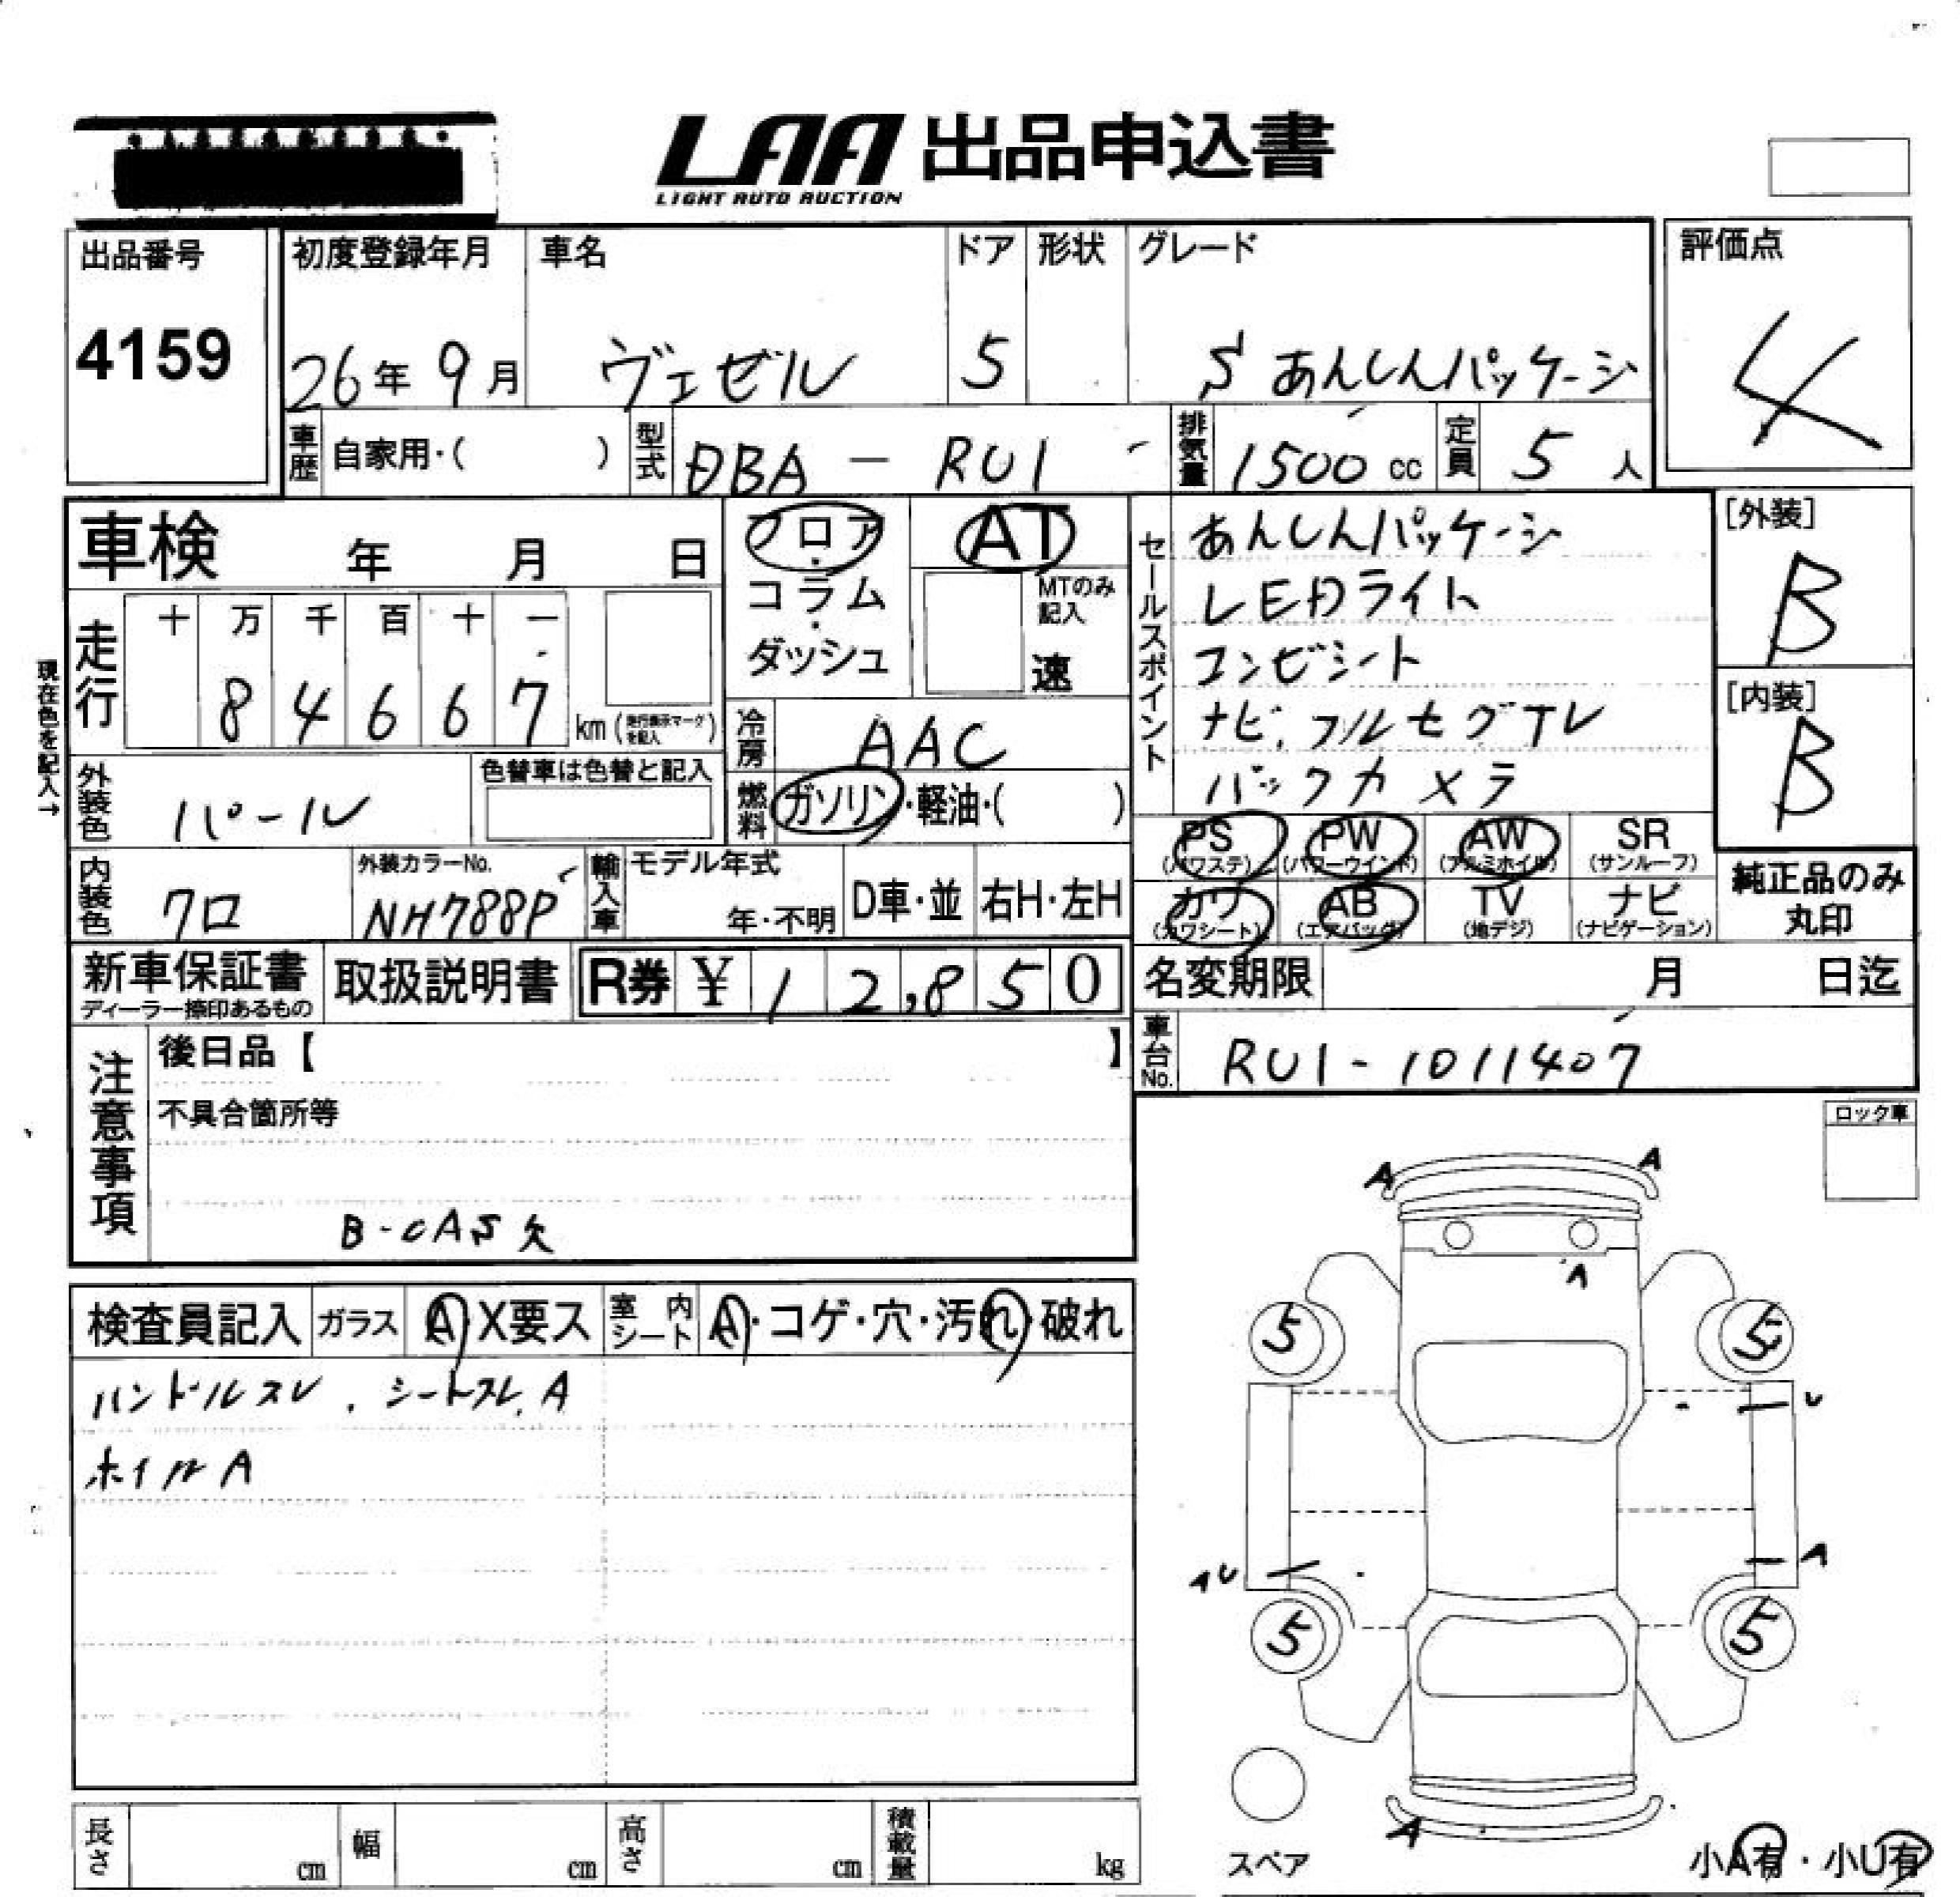 LAA 出品申込書
LIGHT AUTO AUCTION
出品番号 初度登録年月 車名 ドア 形状 グレード 評価点
4159 26年 9月 ヴェゼル 5 S あんしんパッケージ 4
車歴 自家用・( ) 型式 DBA - RU1 排気量 1500 cc 定員 5 人
車検 年 月 日
フロア・コラム・ダッシュ
AT
MTのみ記入
速
セールスポイント
あんしんパッケージ
LEDライト
コンビシート
ナビ,フルセグTV
バックカメラ
[外装]
B
[内装]
B
現在色を記入→
走行
十 万 千 百 十 一
8 4 6 6 7 km (走行表示マークを記入)
冷房 AAC
燃料 ガソリン・軽油・( )
外装色 パール
色替車は色替と記入
PS (パワステ) PW (パワーウインド) AW (アルミホイル) SR (サンルーフ)
カワ (カワシート) AB (エアバッグ) TV (地デジ) ナビ (ナビゲーション)
純正品のみ丸印
内装色 クロ
外装カラーNo.
NH788P
輸入車 モデル年式
年・不明 D車・並 右H・左H
新車保証書 ディーラー捺印あるもの
取扱説明書 R券 ¥ 1 2,8 5 0
名変期限 月 日迄
車台No. RU1-1011407
注意事項
後日品【 】
不具合箇所等
B-CAS欠
ロック車
検査員記入 ガラス A・X要ス 室内シート A・コゲ・穴・汚れ・破れ
ハンドルスレ, シートスレ, A
ホイルA
A A
A
5 5
U
AU A
5 5
A
スペア
小A有・小U有
長さ cm 幅 cm 高さ cm 積載量 kg